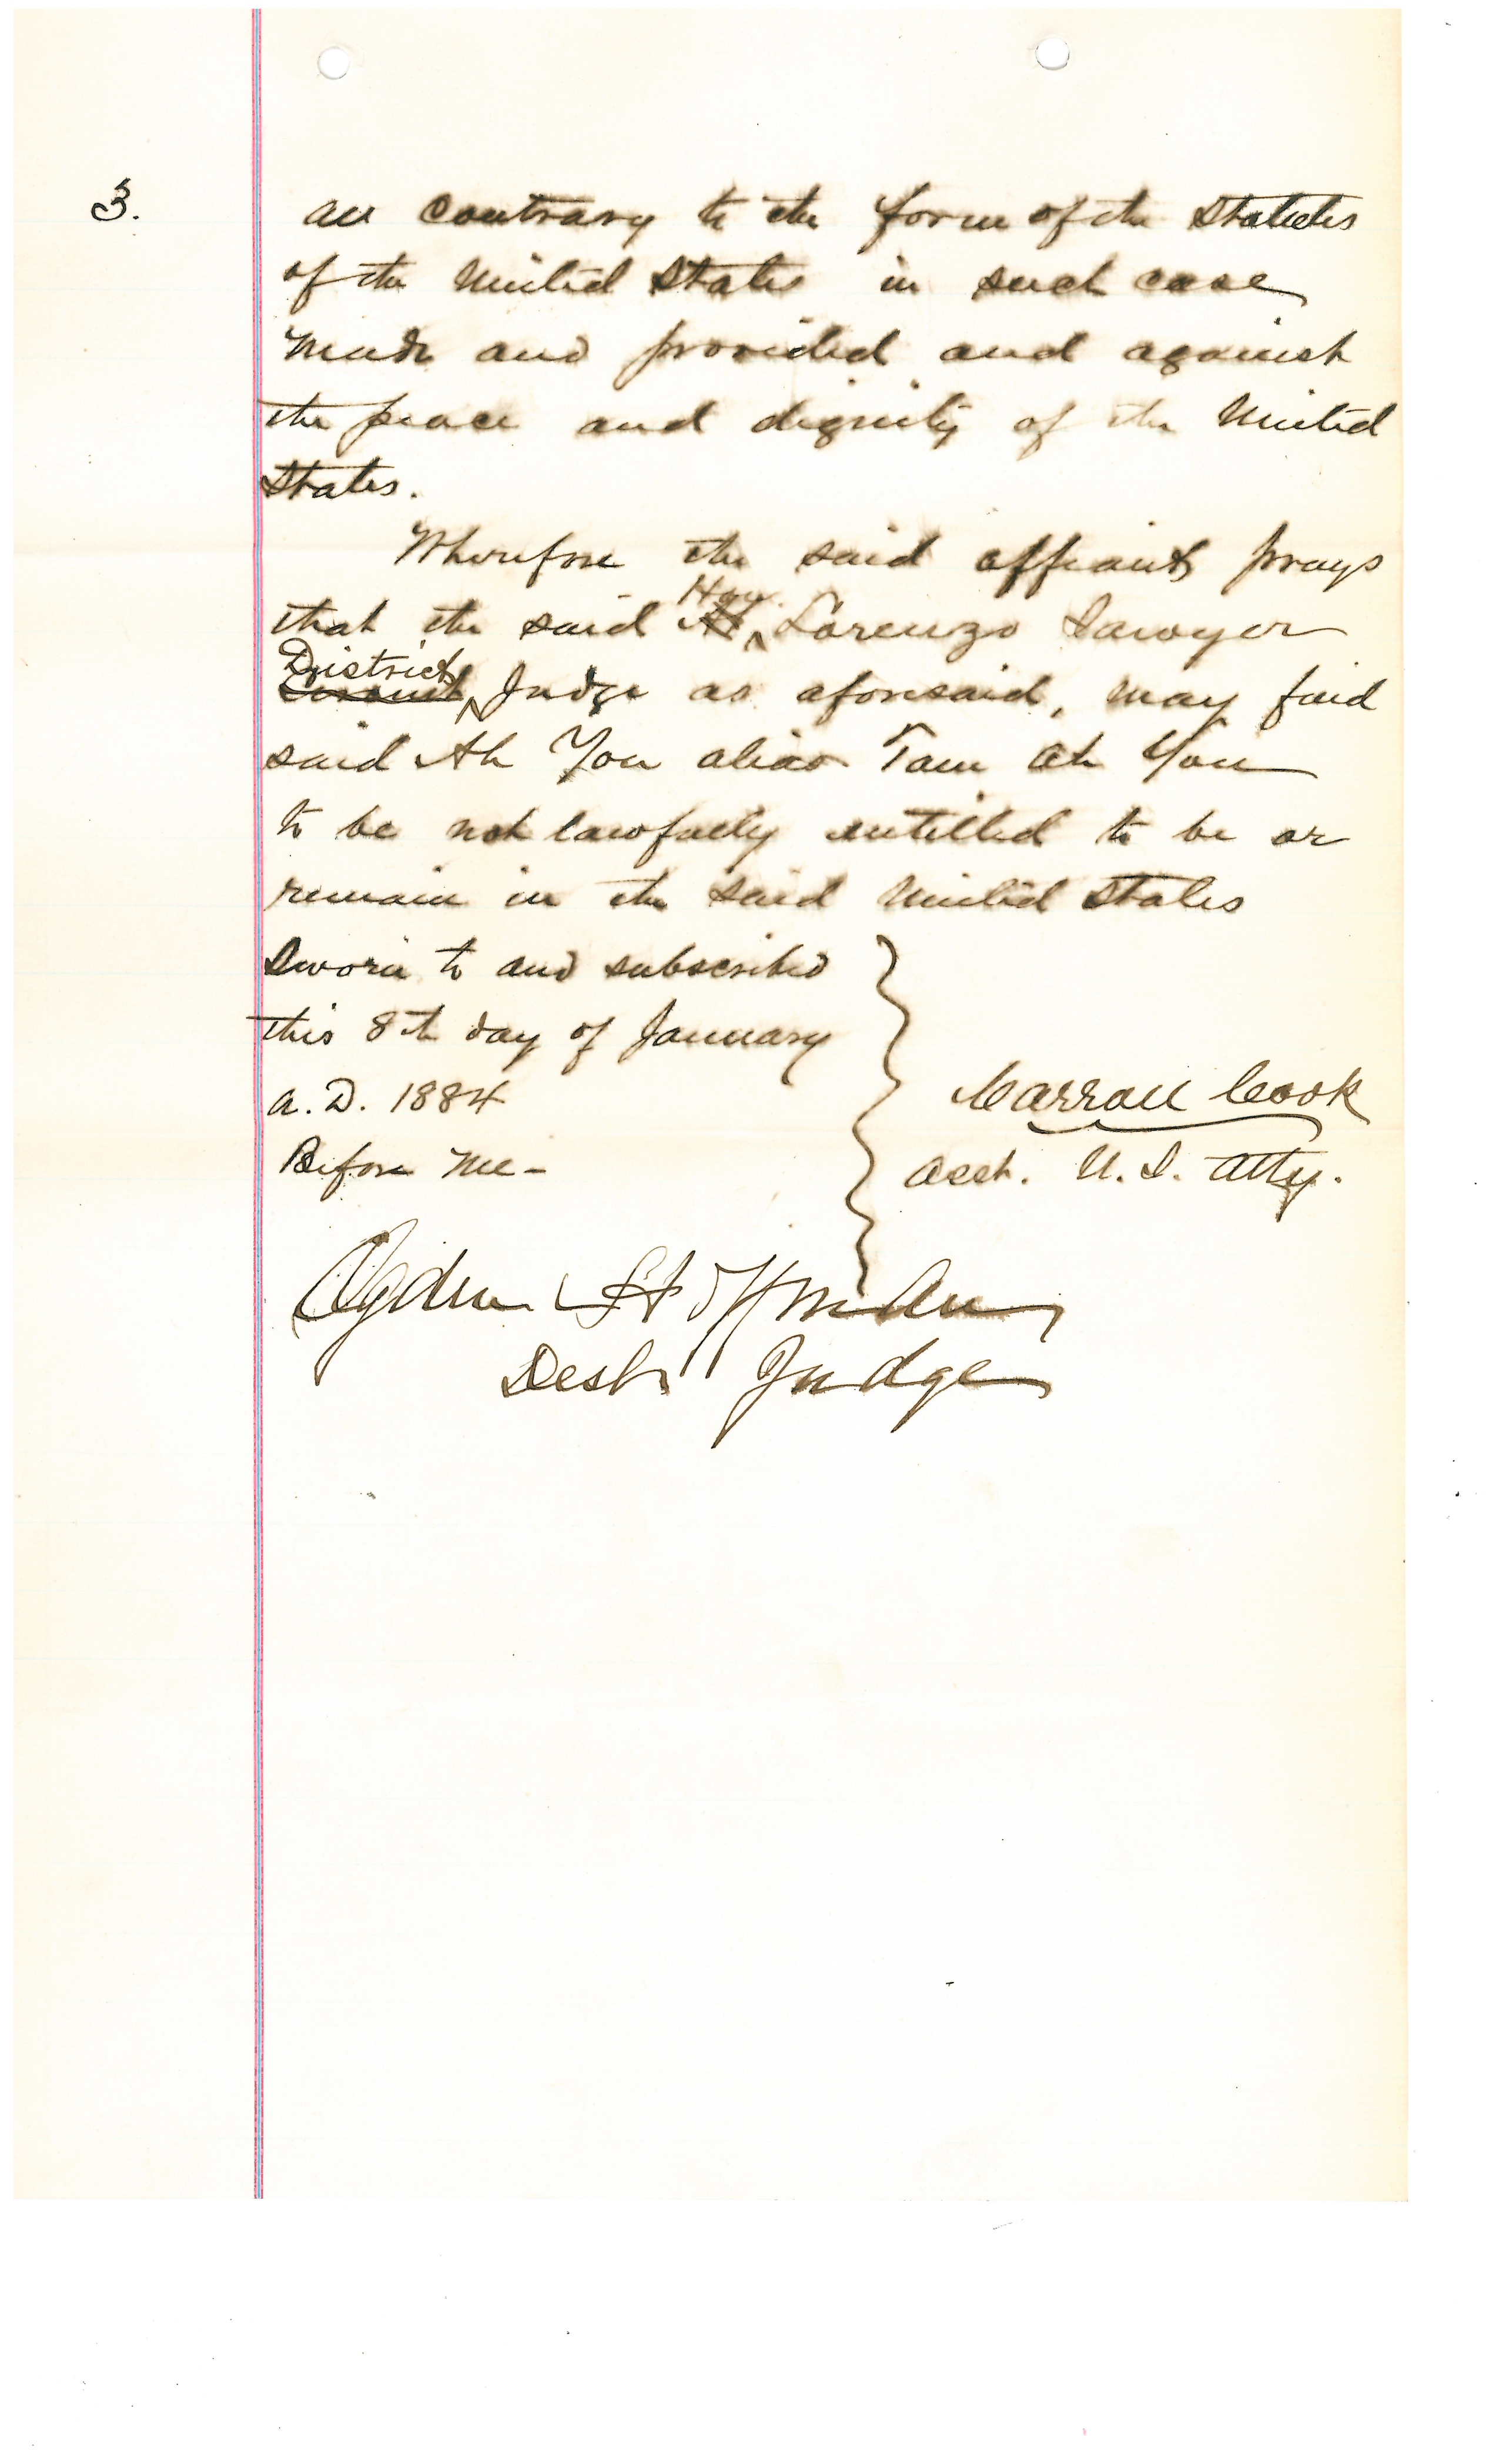 3.
all contrary to the form of the Statutes
of the United States in such case
made and provided and against
the peace and dignity of the United
States.
Wherefore the said affiant prays
that the said Hon. Lorenzo Sawyer
District Circuit Judge as aforesaid, may find
said Ah You alias Tam Ah You
to be not lawfully entitled to be or
remain in the said United States
Sworn to and subscribed
this 8th day of January
A.D. 1884
Before me-
Carroll Cook
Asst. U.S. Atty.
Ogden Hoffman
Dist Judge